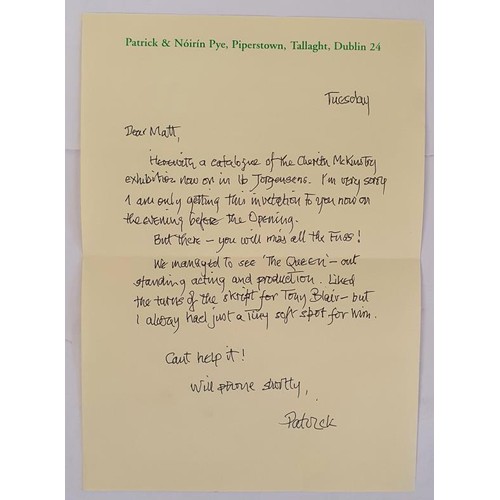 Patrick & Nóirín Pye, Piperstown, Tallaght, Dublin 24
Tuesday
Dear Matt,
Herewith a catalogue of the Cherith McKinstry
exhibition now on in Ib Jorgensens. I'm very sorry
I am only getting this invitation to you now on
the evening before the Opening.
But there – you will miss all the Fuss!
We managed to see 'The Queen' – out
standing acting and production. Liked
the turns of the skript for Tony Blair – but
I always had just a Tiny soft spot for him.
Cant help it!
Will phone shortly,
Patrick